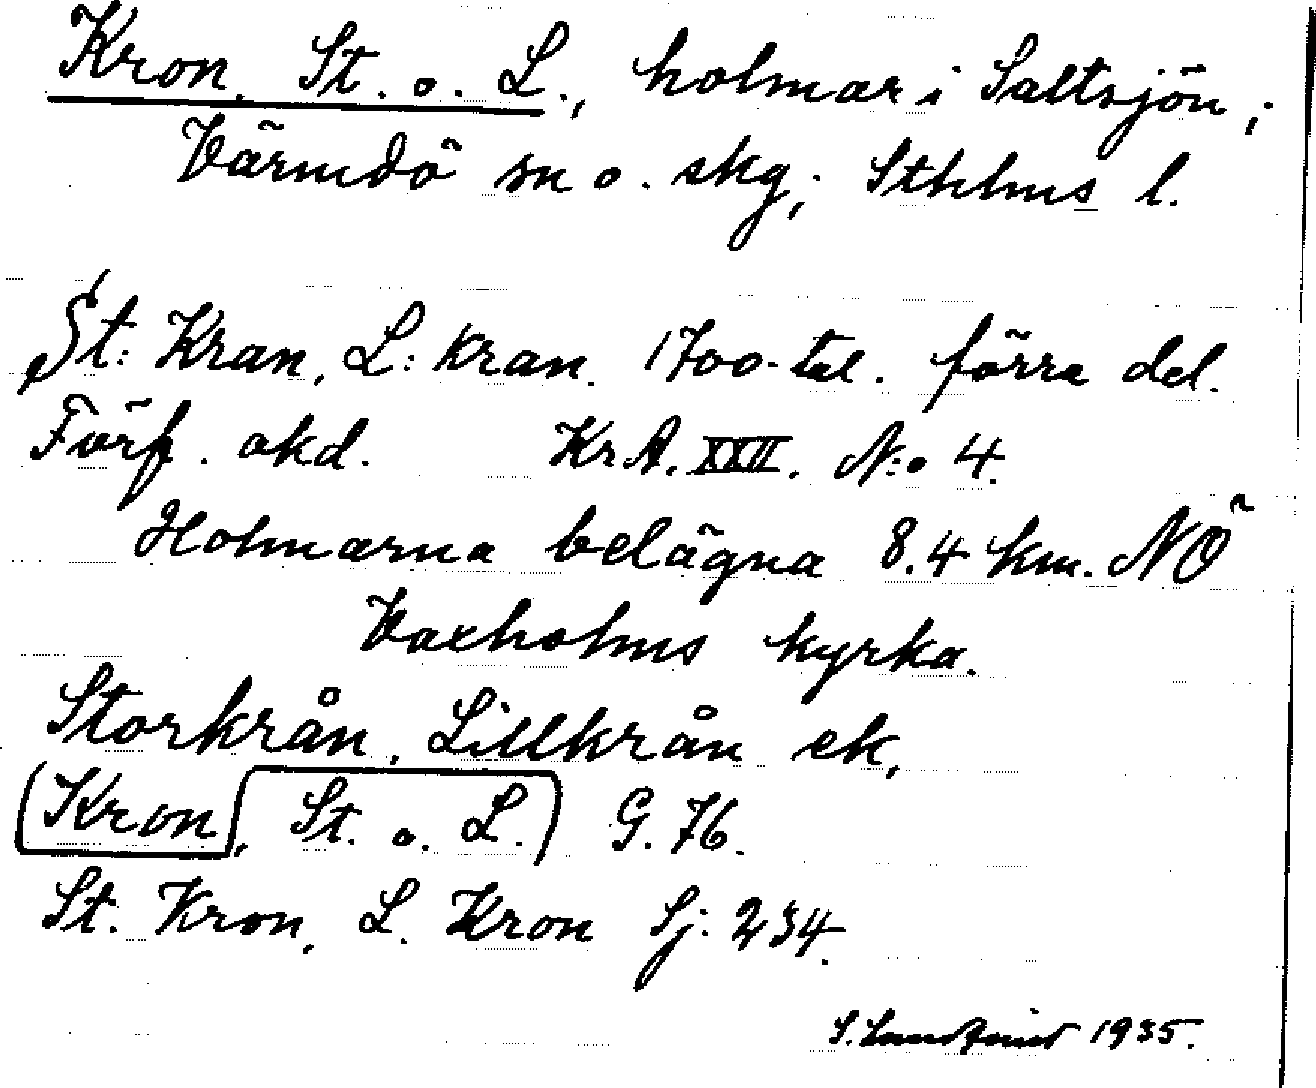 Kron, St. o. L., holmar i Saltsjön,
Värmdö sn o. skg, Sthlms l.
St: Kran, L: Kran. 1700-tal. förra del.
Förf. okd. Kr.A. XXII. N:o 4.
Holmarna belägna 8.4 km. NÖ
Vaxholms kyrka.
Storkrån, Lillkrån ek,
(Kron, St. o. L.) G. 76.
St. Kron, L. Kron Sj: 234.
1935.